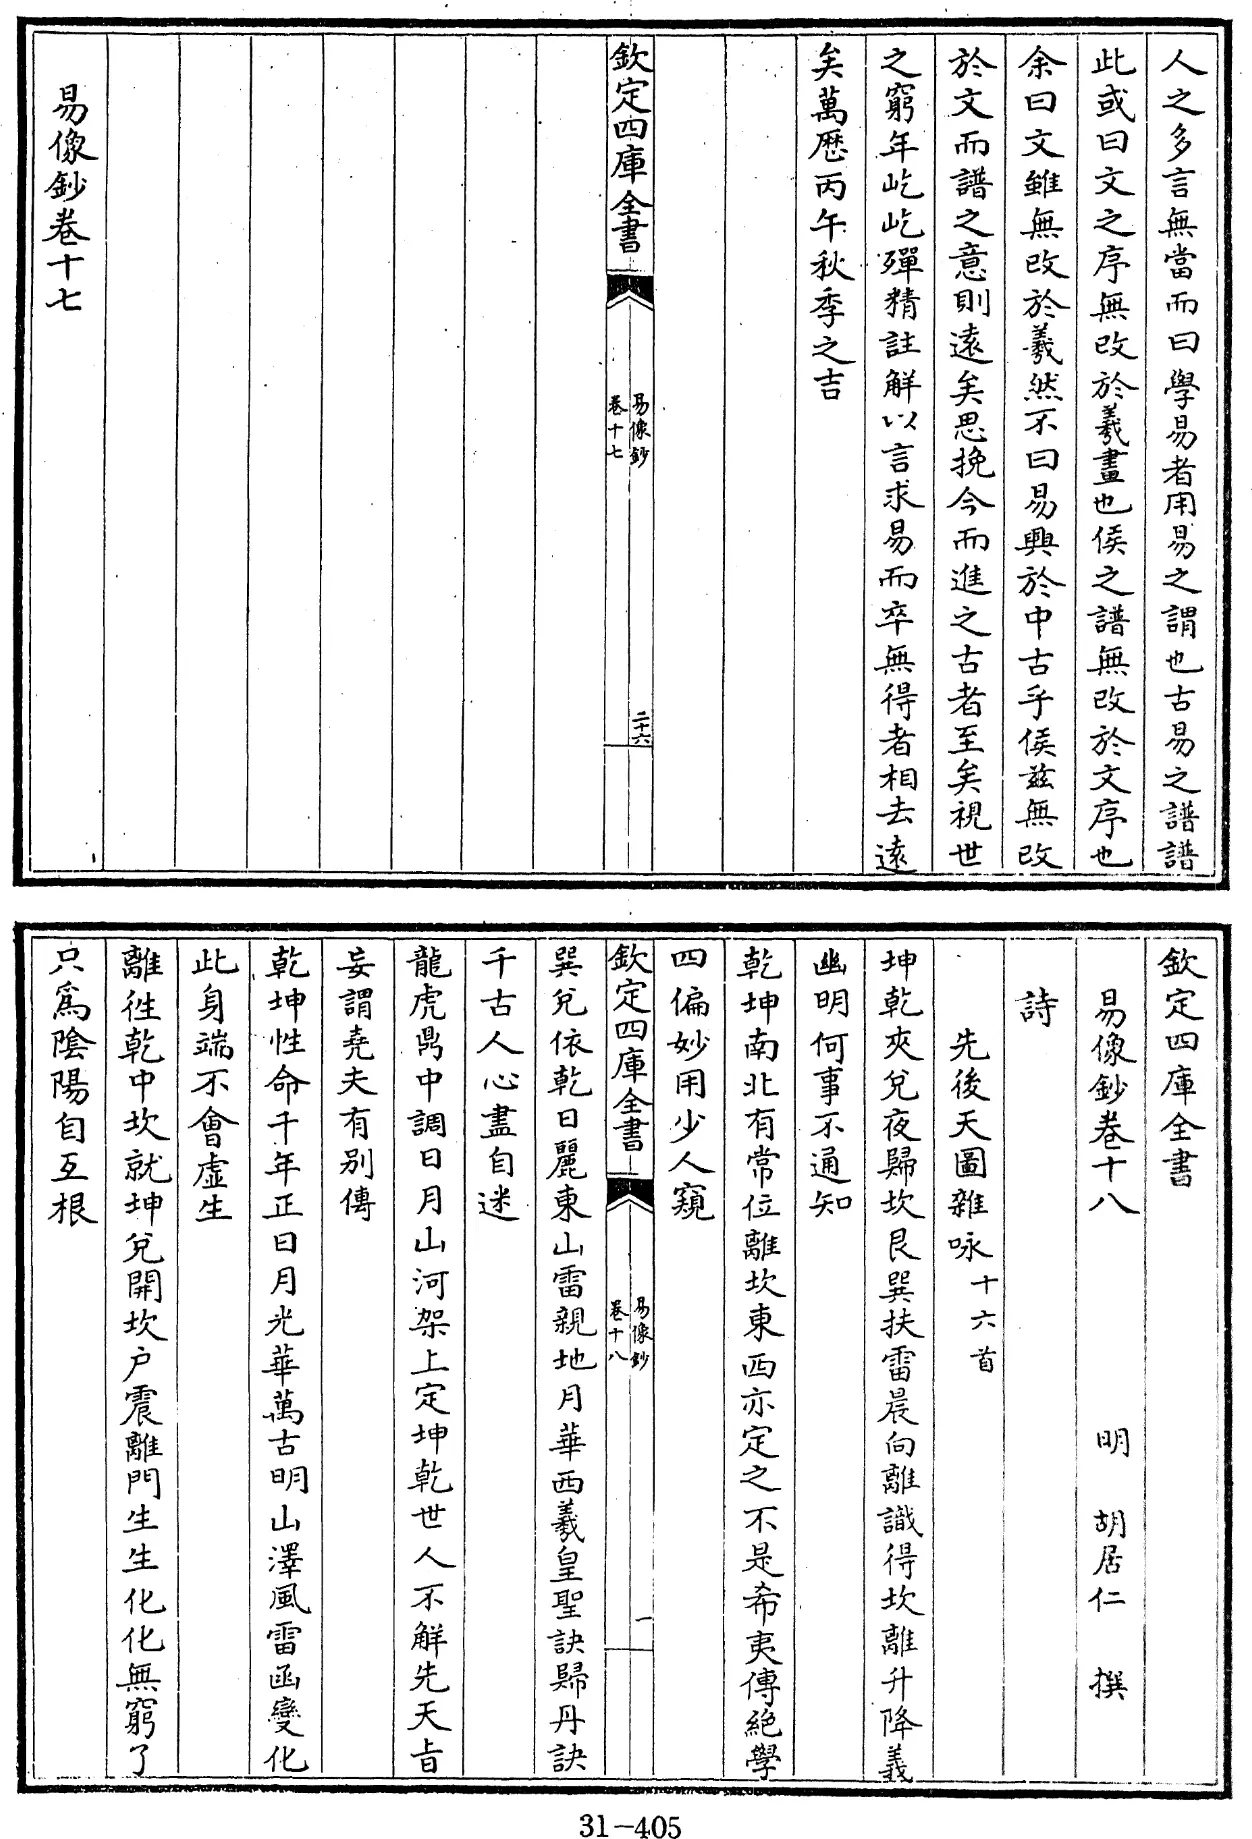 人之多言無當而曰學易者用易之謂也古易之譜譜
此或曰文之序無改於羲畫也侯之譜無改於文序也
余曰文雖無改於羲然不曰易興於中古乎侯兹無改
於文而譜之意則遠矣思挽今而進之古者至矣視世
之窮年屹屹殫精註解以言求易而卒無得者相去遠
矣萬歷丙午秋季之吉
欽定四庫全書
易像鈔
卷十七
二十六
易像鈔卷十七
欽定四庫全書
易像鈔卷十八
明 胡居仁 撰
詩
先後天圖雜咏十六首
坤乾夾兊夜歸坎艮巽扶雷晨向離識得坎離升降義
幽明何事不通知
乾坤南北有常位離坎東西亦定之不是希夷傳絶學
四偏妙用少人窺
欽定四庫全書
易像鈔
卷十八
一
巽兊依乾日麗東山雷親地月華西羲皇聖訣歸丹訣
千古人心盡自迷
龍虎鼎中調日月山河架上定坤乾世人不解先天旨
妄謂堯夫有别傳
乾坤性命千年正日月光華萬古明山澤風雷函變化
此身端不會虚生
離徃乾中坎就坤兊開坎户震離門生生化化無窮了
只爲陰陽自互根
31-405